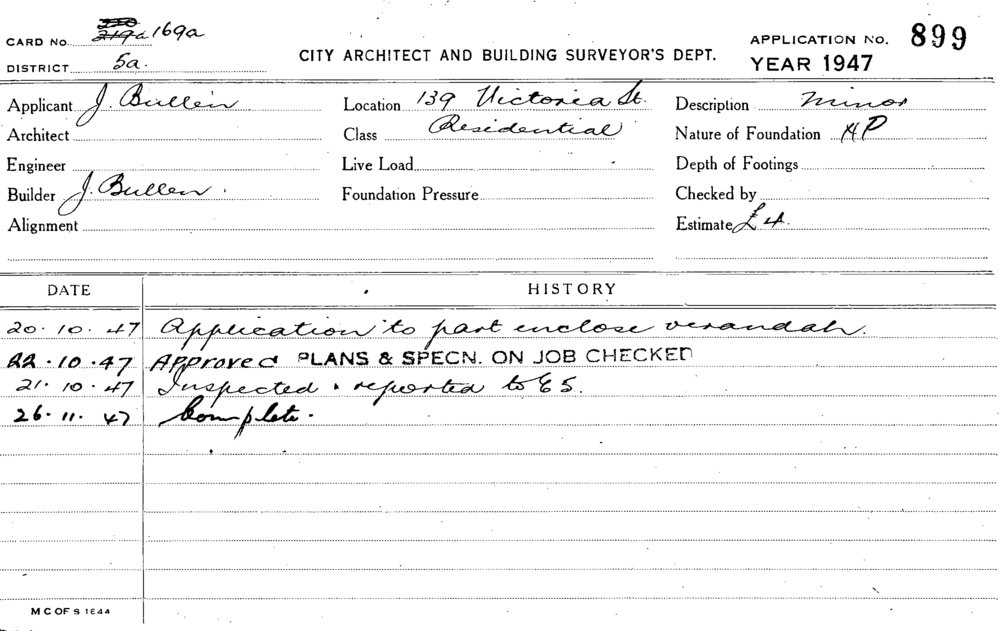 CARD No. 219a 169a
CITY ARCHITECT AND BUILDING SURVEYOR'S DEPT.
APPLICATION No. 899
DISTRICT 5a.
YEAR 1947
Applicant J. Bullen Location 139 Victoria St. Description Minor
Architect Class Residential Nature of Foundation
Engineer Live Load Depth of Footings
Builder J. Bullen Foundation Pressure Checked by
Alignment Estimate £4.
DATE HISTORY
20.10.47 Application to part enclose verandah.
22.10.47 Approved PLANS & SPECN. ON JOB CHECKED
21.10.47 Inspected & reported to ES.
26.11.47 Complete.
M C OF S 1844